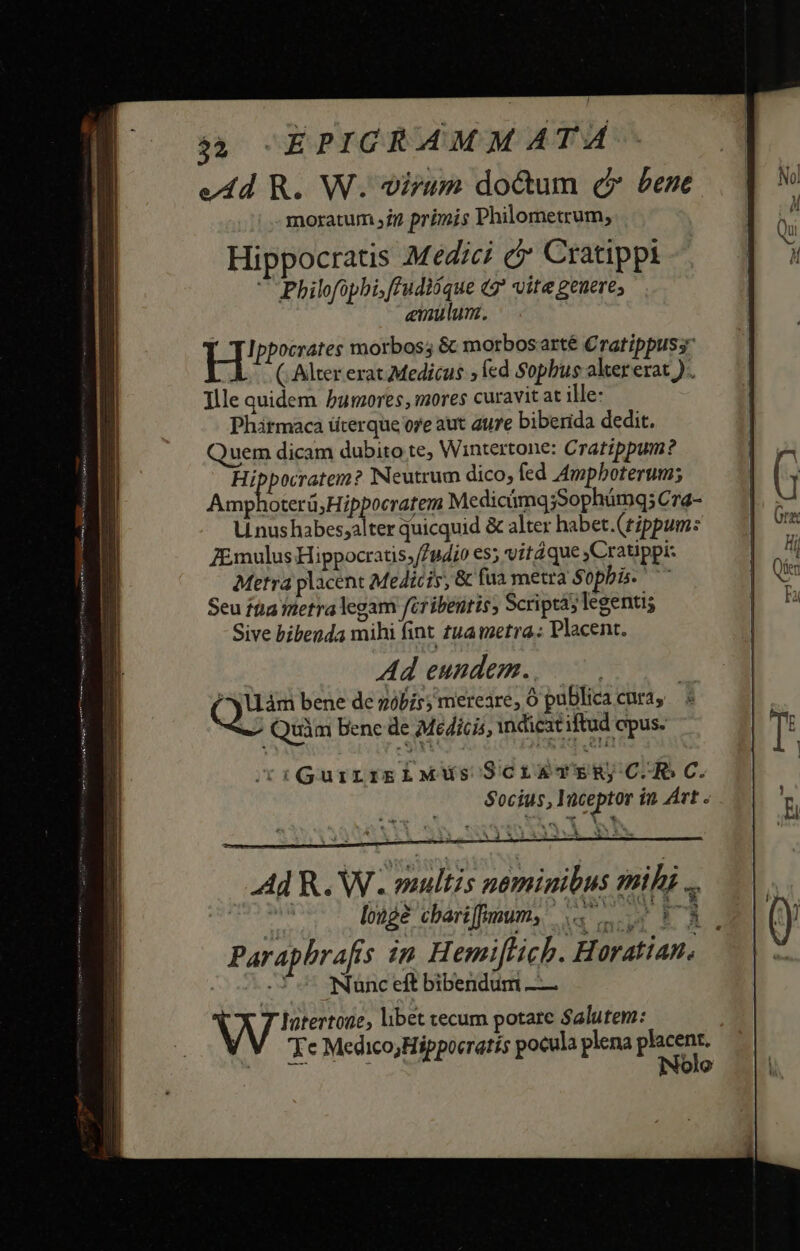 32 EPIGRAMMATA
Ad R. W. virum doctum & bene
moratum, in primis Philometrum,
Hippocratis Medici & Cratippi
Philosophi, studióque & vitæ genere,
æmulum.
HIppocrates morbos; & morbos arté Cratippus;
( Alter erat Medicus, sed Sophus alter erat ).
Ille quidem humores, mores curavit at ille:
Phármaca úterque ore aut aure bibenda dedit.
Quem dicam dubito te, Wintertone: Cratippum?
Hippocratem? Neutrum dico, sed Amphoterum;
Amphoterū, Hippocratem Medicúmq; Sophúmq; Cra-
Unus habes, alter quicquid & alter habet. (tippum:
Æmulus Hippocratis, studio es; vitáque, Cratippi:
Metra placent Medicis, & sua metra Sophis.
Seu túa metra legam scribentis, Scripta; legentis
Sive bibenda mihi sint tua metra: Placent.
Ad eundem.
QUám bene de nobis, mereare, ô publica cura,
Quàm bene de Medicis, indicat istud opus.
GUILIELMUS SCLATER, C. R. C.
Socius, Inceptor in Art.
Ad R. W. multis nominibus mihi
longè charissimum,
Paraphrasis in Hemistich. Horatian.
Nunc est bibendum —
WIntertone, libet tecum potare Salutem:
Te Medico, Hippocratis pocula plena placent.
Nolo